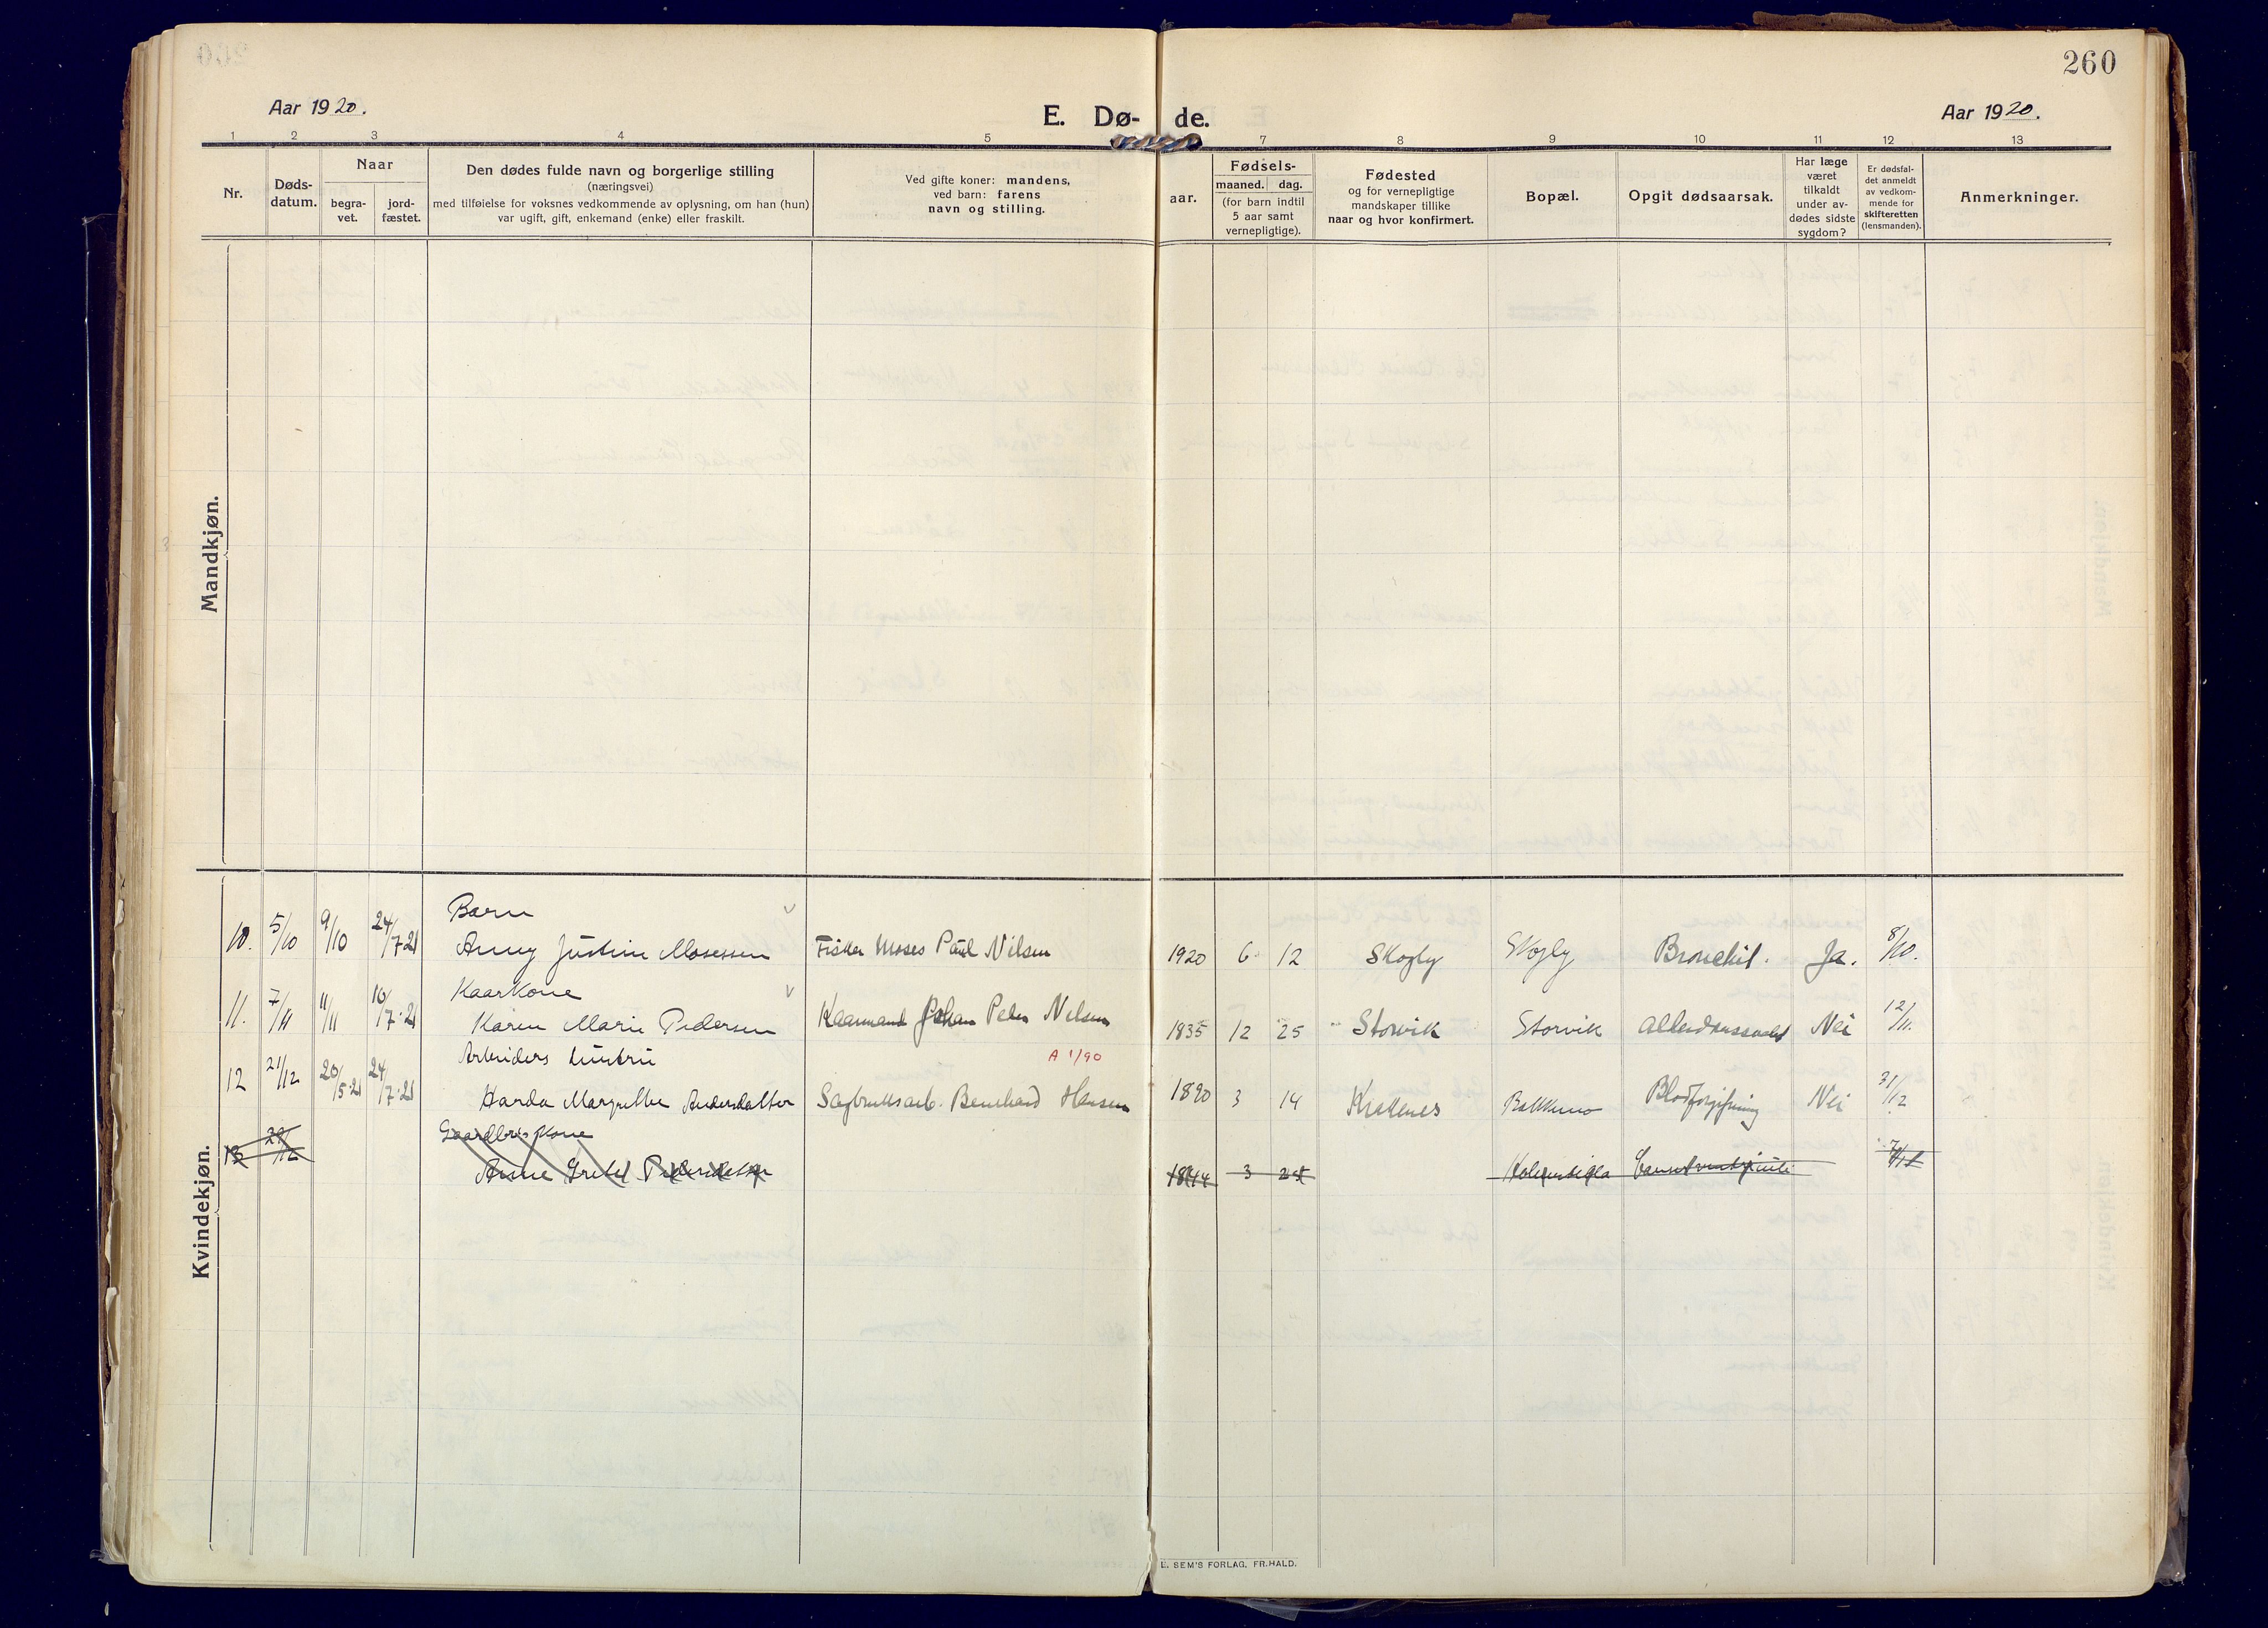 260
Aar 1920.
E. Dø-de.
Aar 1920.
1 2 3 4 5 7 8 9 10 11 12 13
Nr.
Døds-
datum.
Naar
begra-
vet.
jord-
fæstet.
Den dødes fulde navn og borgerlige stilling
(næringsvei)
med tilføielse for voksnes vedkommende av oplysning, om han (hun)
var ugift, gift, enkemand (enke) eller fraskilt.
Ved gifte koner: mandens,
ved barn: farens
navn og stilling.
aar.
Fødsels-
maaned. dag.
(for barn indtil
5 aar samt
vernepligtige).
Fødested
og for vernepligtige
mandskaper tillike
naar og hvor konfirmert.
Bopæl.
Opgit dødsaarsak.
Har læge
været
tilkaldt
under av-
dødes sidste
sygdom?
Er dødsfal-
det anmeldt
av vedkom-
mende for
skifteretten
(lensmanden).
Anmerkninger.
Mandkjøn.
Kvindekjøn.
Barn
10. 5/10 9/10 24/7-21 Anny Justine Mosessen Fisker Moses Paul Nilsen 1920 6 12 Skogly Skogly Bronchit. Ja. 8/10.
Kaarkone
11. 7/11 11/11 10/7-21 Karen Marie Pedersen Kaarmand Johan Peder Nilsen 1835 12 25 Storvik Storvik Nei 12/11.
Arbeiders hustru
A 1/90
12 21/12 20/5-21 24/7-21 Harda Margrethe Andersdatter Sagbruksarb. Bernhard Hansen 1890 3 14 Krokenes Bakkemo Blodforgiftning Nei 31/12
Gaardbr. kone
13 29/12 Anne Gretel Pedersdatter 1844 3 25
E. SEM'S FORLAG, FR.HALD.